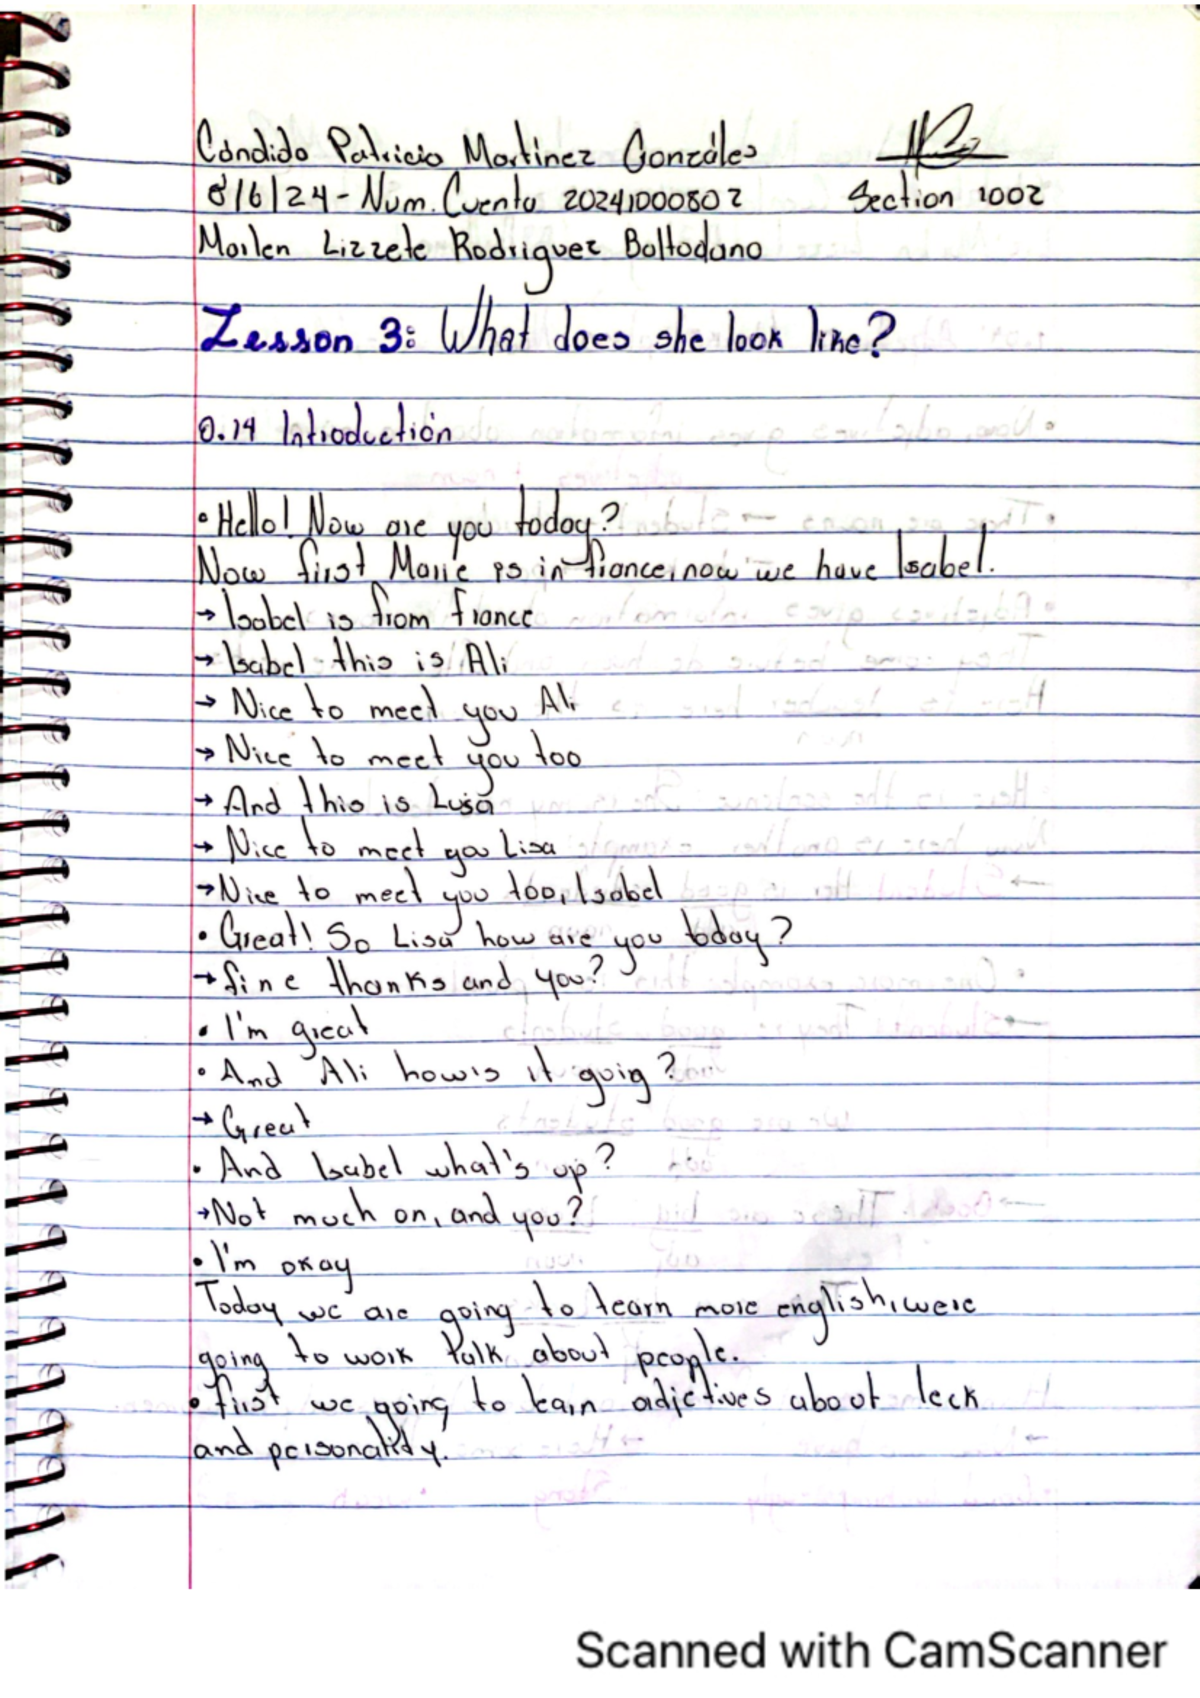 Cándido Patricio Martínez Gonzáles
8/6/24 - Num. Cuenta 20241000802 Section 1002
Marlen Lizzete Rodriguez Baltodano
Lesson 3: What does she look like?
0.14 Introductión
• Hello! Now are you today?
Now first Marie is in france, now we have Isabel.
→ Isabel is from france
→ Isabel this is Ali
→ Nice to meet you Ali
→ Nice to meet you too
→ And this is Lisa
→ Nice to meet you Lisa
→ Nice to meet you too, Isabel
• Great! So Lisa how are you today?
→ fine thanks and you?
• I'm great
• And Ali how's it goig?
→ Great
• And Isabel what's up?
→ Not much on, and you?
• I'm okay
Today we are going to learn more english, were
going to work talk about people.
• first we going to learn adjctives about lock
and personality.
Scanned with CamScanner